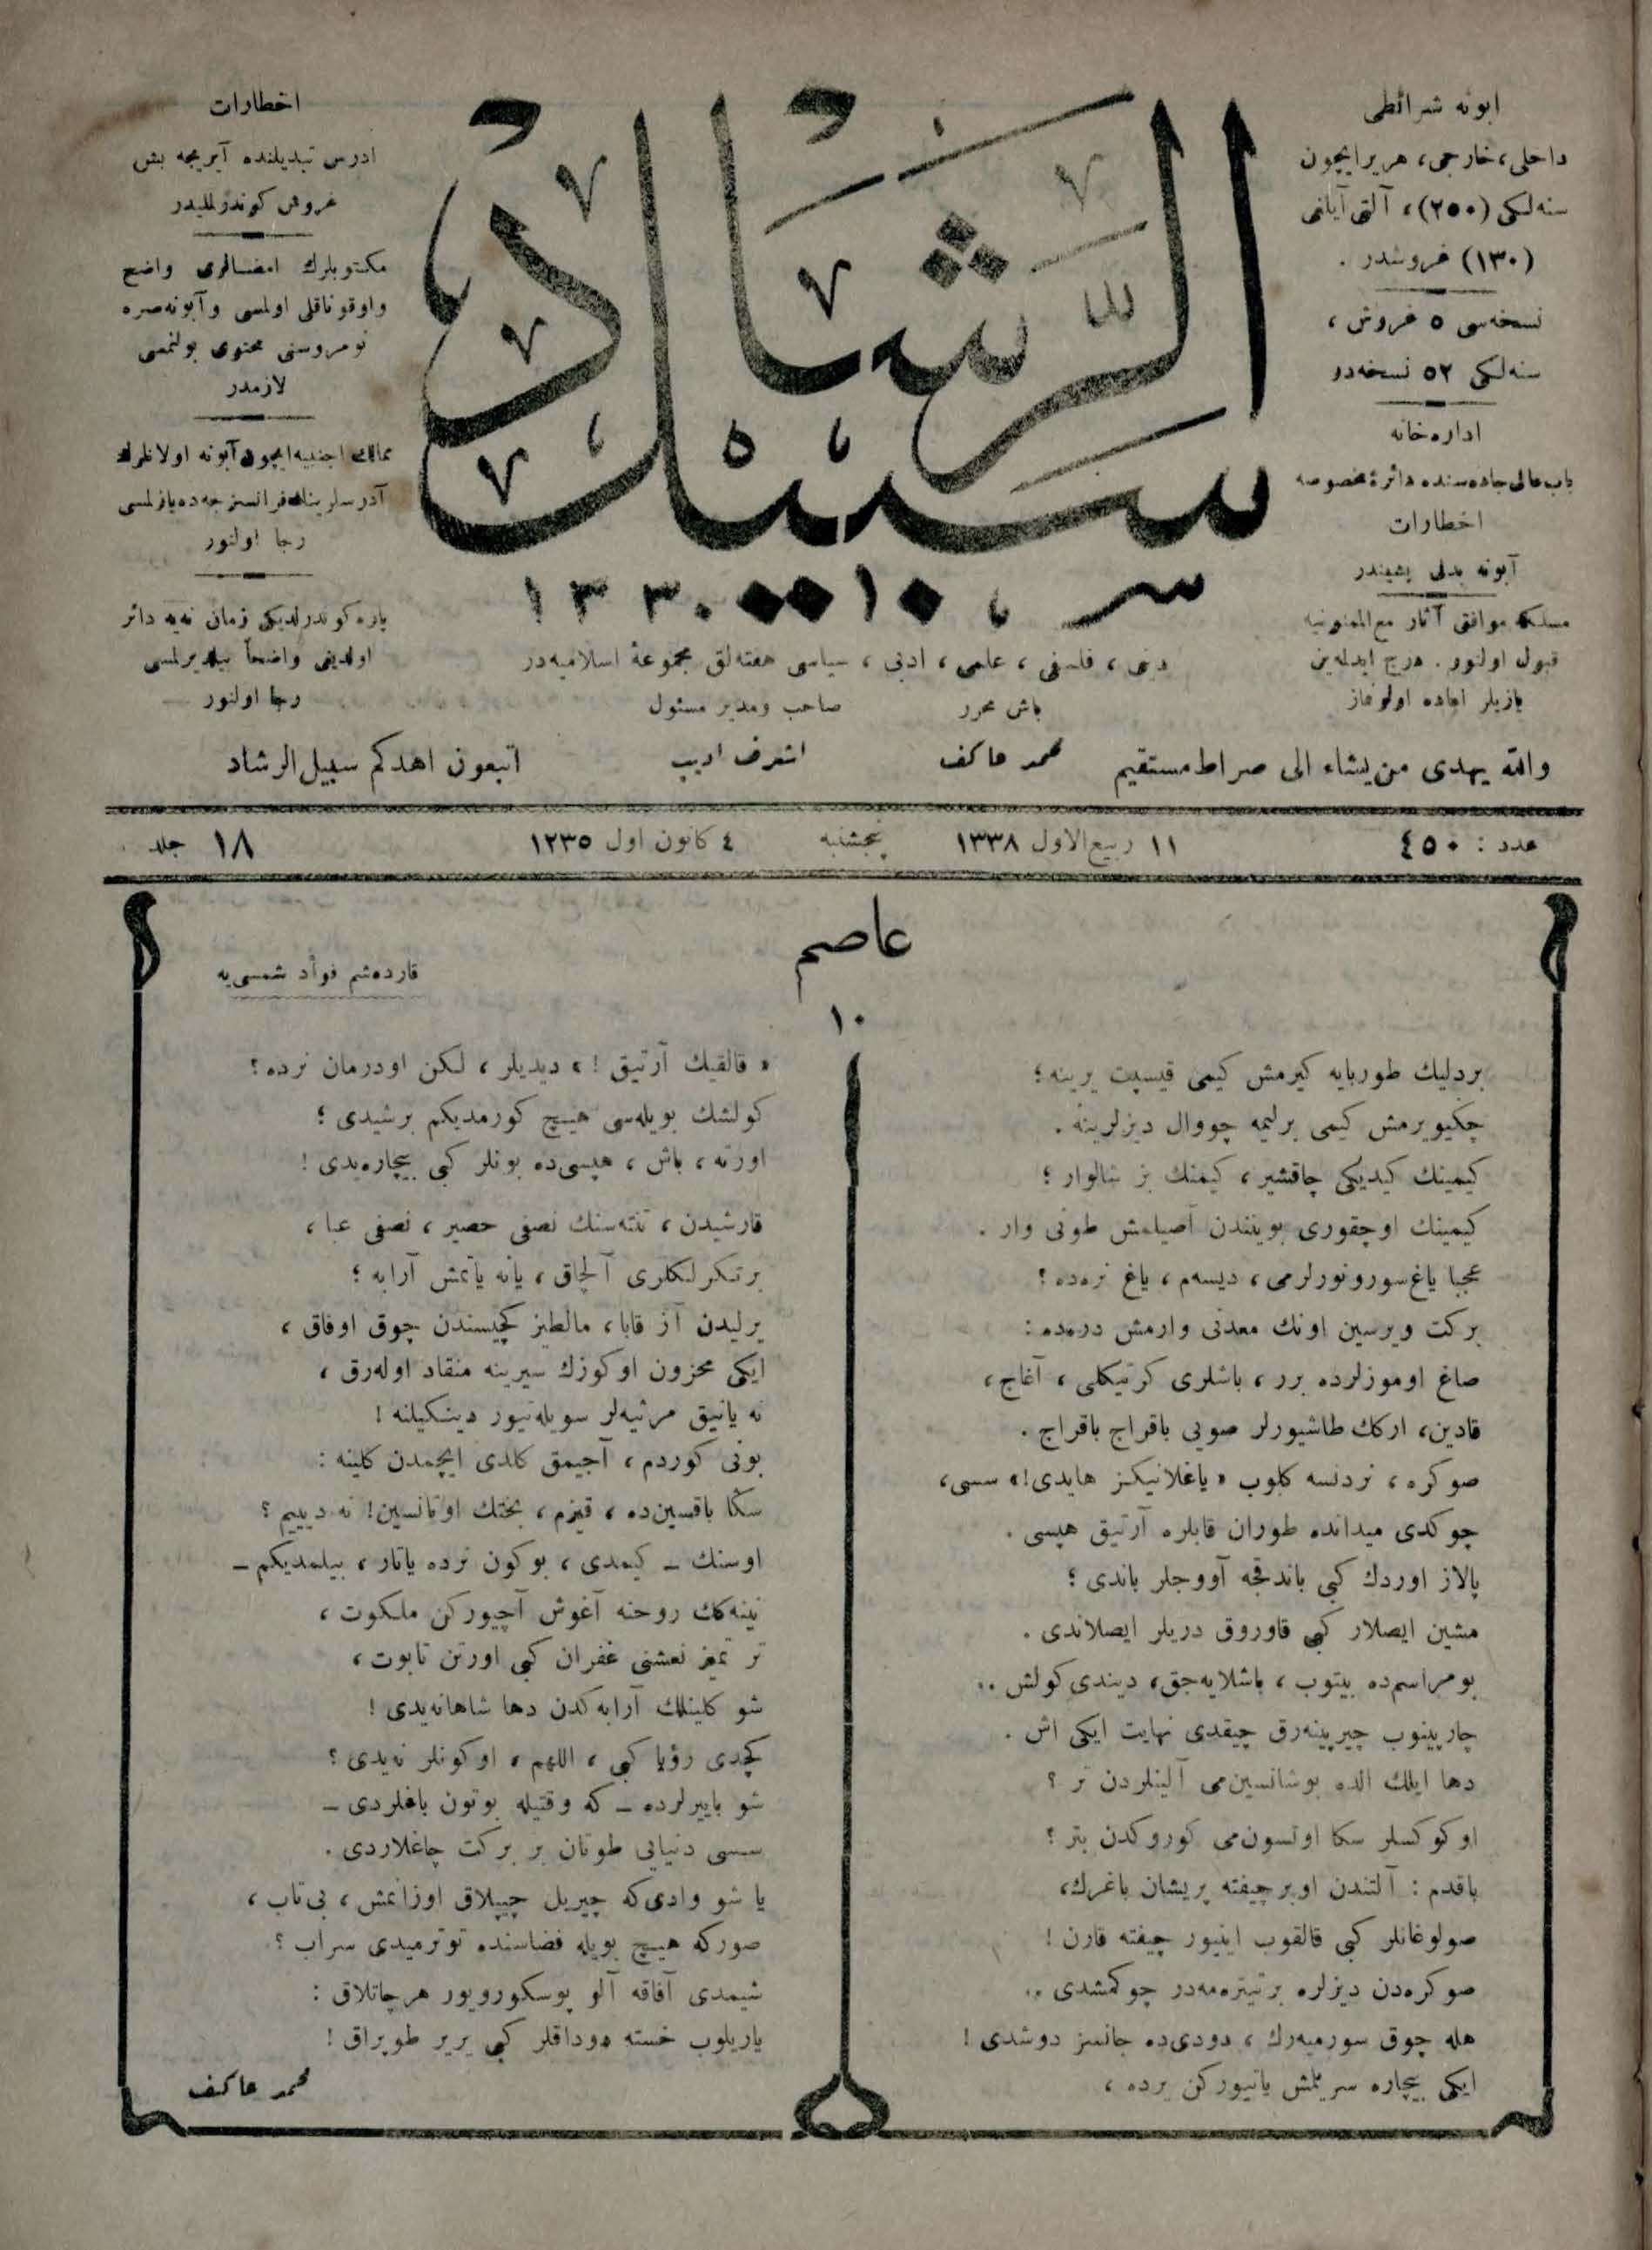 ابونه شرائطی
داخلی، خارجی، هر یر ایچون
سنه‌لکی (۲۵۰)، آلتی آیلغی
(۱۳۰) غروشدر .
نسخه‌سی ۵ غروش،
سنه‌لکی ۵۲ نسخه‌در
اداره‌خانه
باب عالی جاده‌سنده دائرهٔ مخصوصه
اخطارات
آبونه بدلی پشیندر
مسلکه موافق آثار مع الممنونیه
قبول اولنور . درج ایدلمه‌ین
یازیلر اعاده اولونماز
سبیل الرشاد
۱۳۳۰
دینی، فلسفی، علمی، ادبی، سیاسی هفته‌لق مجموعهٔ اسلامیه‌در
باش محرر
صاحب ومدیر مسئول
محمد عاکف
اشرف ادیب
اخطارات
ادرس تبدیلنده آیریجه بش
غروش کوندرلملیدر
مکتوبلرك امضالری واضح
واوقوناقلی اولمسی وآبونه صره
نومروسنی محتوی بولنمسی
لازمدر
ممالك اجنبیه ایچون آبونه اولانلرك
آدرسلرینك فرانسزجه‌ده یازلمسی
رجا اولنور
پاره کوندرلدیکی زمان نه‌یه دائر
اولدیغی واضحاً بیلدیرلمسی
رجا اولنور
والله یهدی من یشاء الی صراط مستقیم
اتبعون اهدکم سبیل الرشاد
عدد : ۴۵۰
۱۱ ربیع‌الاول ۱۳۳۸
پنجشنبه
٤ کانون اول ۱۲۳۵
۱۸ جلد
عاصم
قارده‌شم فوأد شمسی‌یه
۱۰
بردلیك طوربایه کیرمش کیمی قیسپت یرینه؛
چکیویرمش کیمی برلیمه چووال دیزلرینه .
کیمینك کیدیکی چاقشیر، کیمنك بز شالوار؛
کیمینك اوچقوری بویتندن آصیلمش طونی وار .
عجبا یاغ سورونورلرمی، دیسه‌م، یاغ نره‌ده؟
برکت ویرسین اونك معدنی وارمش دره‌ده :
صاغ اوموزلرده برر، باشلری کرتیکلی، آغاج،
قادین، ارکك طاشیورلر صویی باقراج باقراج .
صوکره، نردنسه کلوب «یاغلانیکز هایدی!» سسی،
چوکدی میدانده طوران قابلره آرتیق هپسی .
پالاز اوردك کبی باندقجه آووجلر باندی؛
مشین ایصلار کبی قاوروق دریلر ایصلاندی .
بو مراسم‌ده بیتوب، باشلایه‌جق، دیندی کولش ..
چارپینوب چیرپینه‌رق چیقدی نهایت ایکی اش .
دها ایلك الده بوشانسین‌می آلینلردن تر؟
او کوکسلر سکا اوتسون‌می کوروکدن بتر؟
باقدم : آلتندن او بر چیفته پریشان باغرك،
صولوغانلر کبی قالقوب اینیور چیفته قارن!
صوکره‌دن دیزلره برتیتره‌مه‌در چوکمشدی ..
هله چوق سورمیه‌رك، دودی‌ده جانسز دوشدی!
ایکی بیچاره سریلمش یاتیورکن یرده،
«قالقیك آرتیق!» دیدیلر، لکن اودرمان نرده؟
کولشك بویله‌سی هیچ کورمدیکم برشیدی؛
اورته، باش، هپسی‌ده بونلر کبی بیچاره‌یدی!
قارشیدن، تنته‌سنك نصفی حصیر، نصفی عبا،
برتکرلکلری آلچاق، یانه یاتمش آرابه؛
یرلیدن آز قابا، مالطیز کچیسندن چوق اوفاق،
ایکی محزون اوکوزك سیرینه منقاد اوله‌رق،
نه یانیق مرثیه‌لر سویله‌نیور دینکیلنه!
بونی کوردم، آجیمق کلدی ایچمدن کلینه :
سکا باقسین‌ده، قیزم، بختك اوتانسین! نه دییه‌یم؟
اوسنك ـ کیمدی، بوکون نرده یاتار، بیلمدیکم ـ
نینه‌کك روحنه آغوش آچیورکن ملکوت،
تر تمیز نعشنی غفران کبی اورتن تابوت،
شو کلینلك آرابه‌کدن دها شاهانه‌یدی!
کچدی رؤیا کبی، اللهم، اوکونلر نه‌یدی؟
شو بایرلرده ـ که وقتیله بوتون باغلردی ـ
سسی دنیایی طوتان بر برکت چاغلاردی .
یا شو وادی که چیریل چیپلاق اوزانمش، بی‌تاب،
صورکه هیچ بویله فضاسنده توترمیدی سراب؟
شیمدی آفاقه آلو پوسکورویور هرچاتلاق :
یاریلوب خسته دوداقلر کبی یریر طوپراق!
محمد عاکف